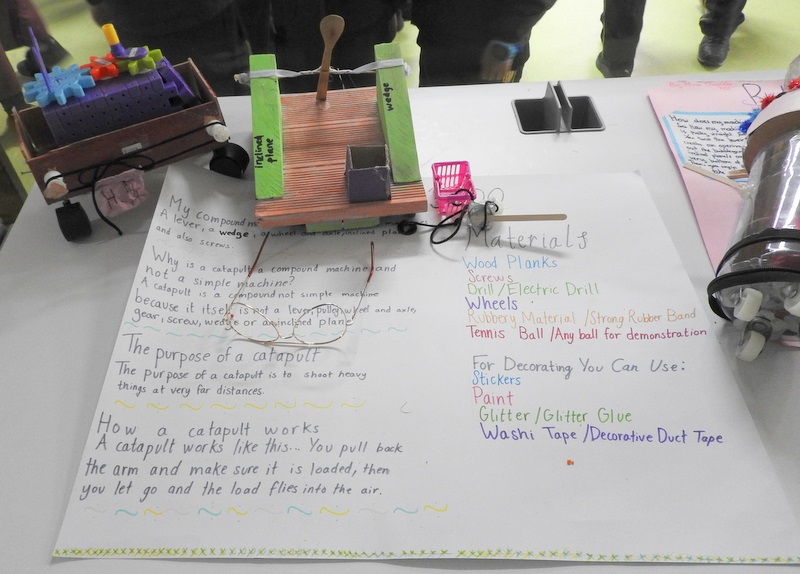 inclined plane
wedge
My compound m
A lever, a wedge, a wheel and axle, inclined plane
and also screws.
Why is a catapult a compound machine and
not a simple machine?
A catapult is a compound not simple machine
because it itself is not a lever, pulley, wheel and axle,
gear, screw, wedge or a inclined plane.
The purpose of a catapult
The purpose of a catapult is to shoot heavy
things at very far distances.
How a catapult works
A catapult works like this... You pull back
the arm and make sure it is loaded, then
you let go and the load flies into the air.
Materials
Wood Planks
Screws
Drill/Electric Drill
Wheels
Rubbery Material /Strong Rubber Band
Tennis Ball /Any ball for demonstration
For Decorating You Can Use:
Stickers
Paint
Glitter/Glitter Glue
Washi Tape /Decorative Duct Tape